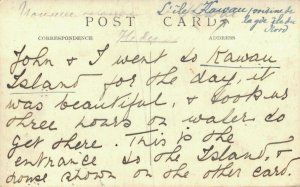 L'île Kawau
POST CARD
CORRESPONDENCE
ADDRESS
John & I went to Kawau
Island for the day, it
was beautiful, & took us
three hours on water to
get there. This is the
entrance to the Island, &
house shown on the other card.